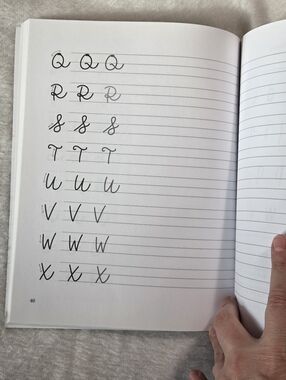 Q Q Q
R R R
S S S
T T T
U U U
V V V
W W W
X X X